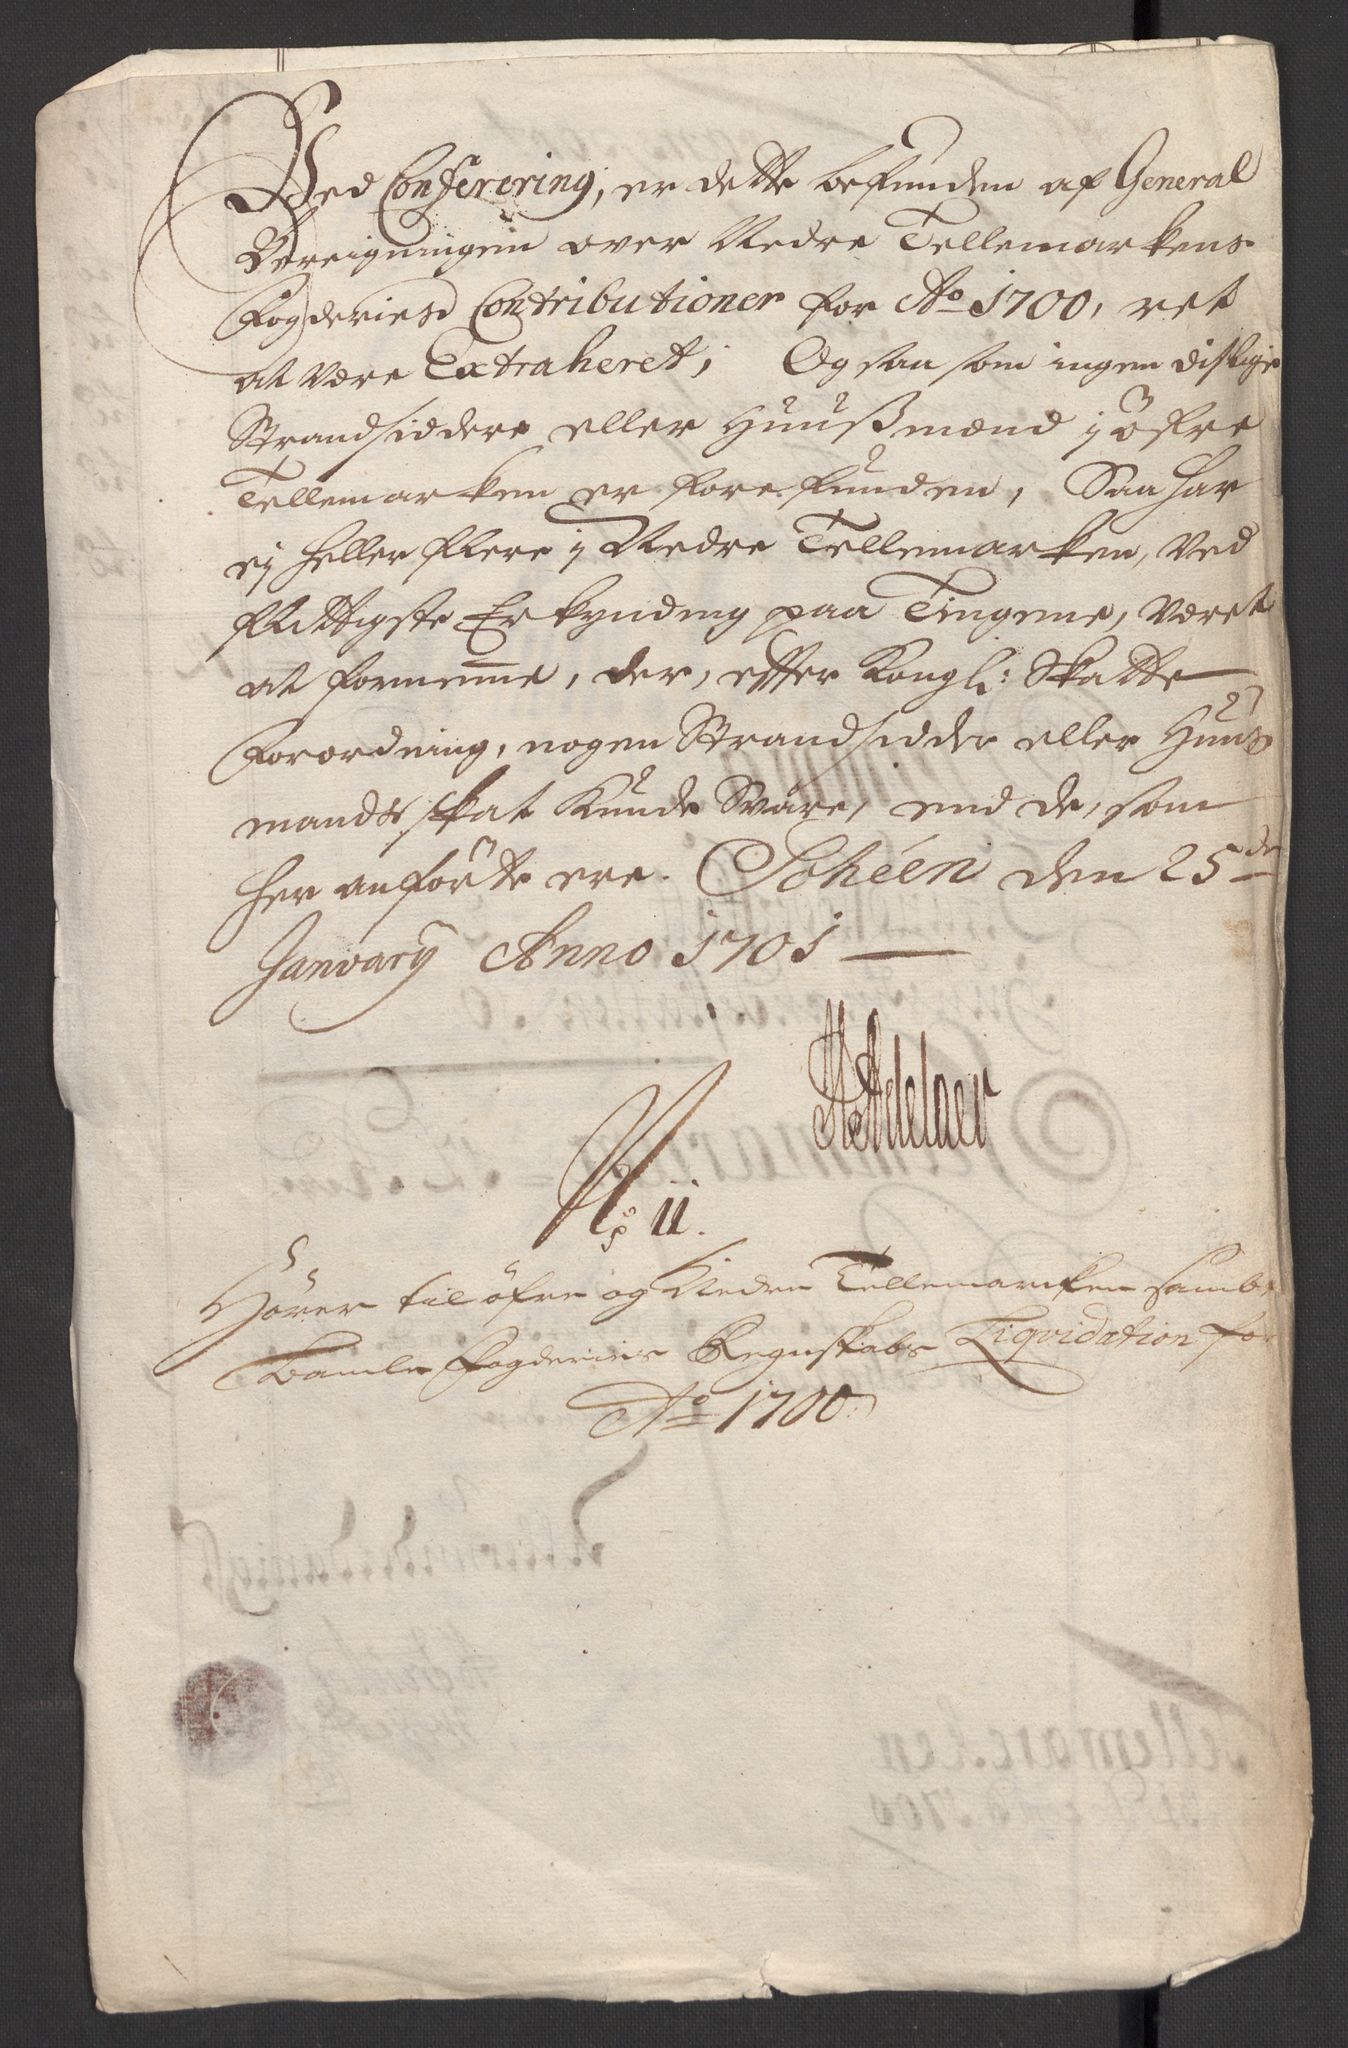 Ved Conferering, er dette befunden af General
Bereigningen over Nedre Tellemarkens
Fogderies Contributioner for Ao 1700, ret
at være Extraheret; Og saasom ingen dislige
Strandsiddere eller Huußmænd j öfre
Tellemarken er forefunden, Saa har
ej heller flere j Nedre Tellemarken, Ved
flittigste Erkynding paa Tingene, været
at fornemme, der, efter Kongl: Skatte
Forordning, nogen Strandsidder eller Huus
mands skat Kunde Svare, end de, som
her anförte ere. Schéen den 25de
Janvarÿ Anno 1701
H Adelaer
No 11.
Hörer til öfre og Nedre Tellemarcken sambt
Bamble Fogderies Regnskabs Liqvidation for
Ao 1700